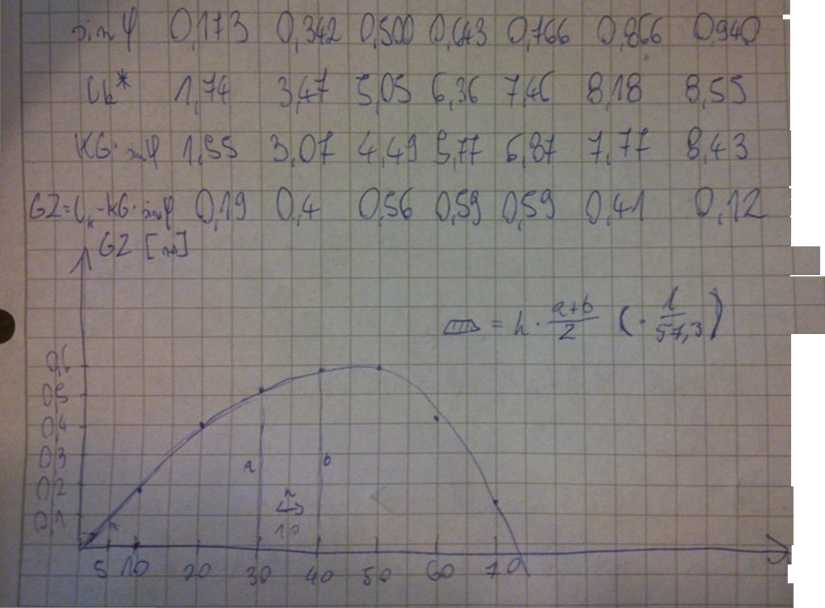 sin φ 0,173 0,342 0,500 0,643 0,766 0,866 0,940
lk* 1,74 3,47 5,05 6,36 7,46 8,18 8,55
KG·sinφ 1,55 3,07 4,49 5,77 6,87 7,77 8,43
GZ=lk-KG·sinφ 0,19 0,4 0,56 0,59 0,59 0,41 0,12
GZ [m]
= h · a+b/2 (· 1/57,3)
0,6
0,5
0,4
0,3
0,2
0,1
a b
h
10
5 10 20 30 40 50 60 70